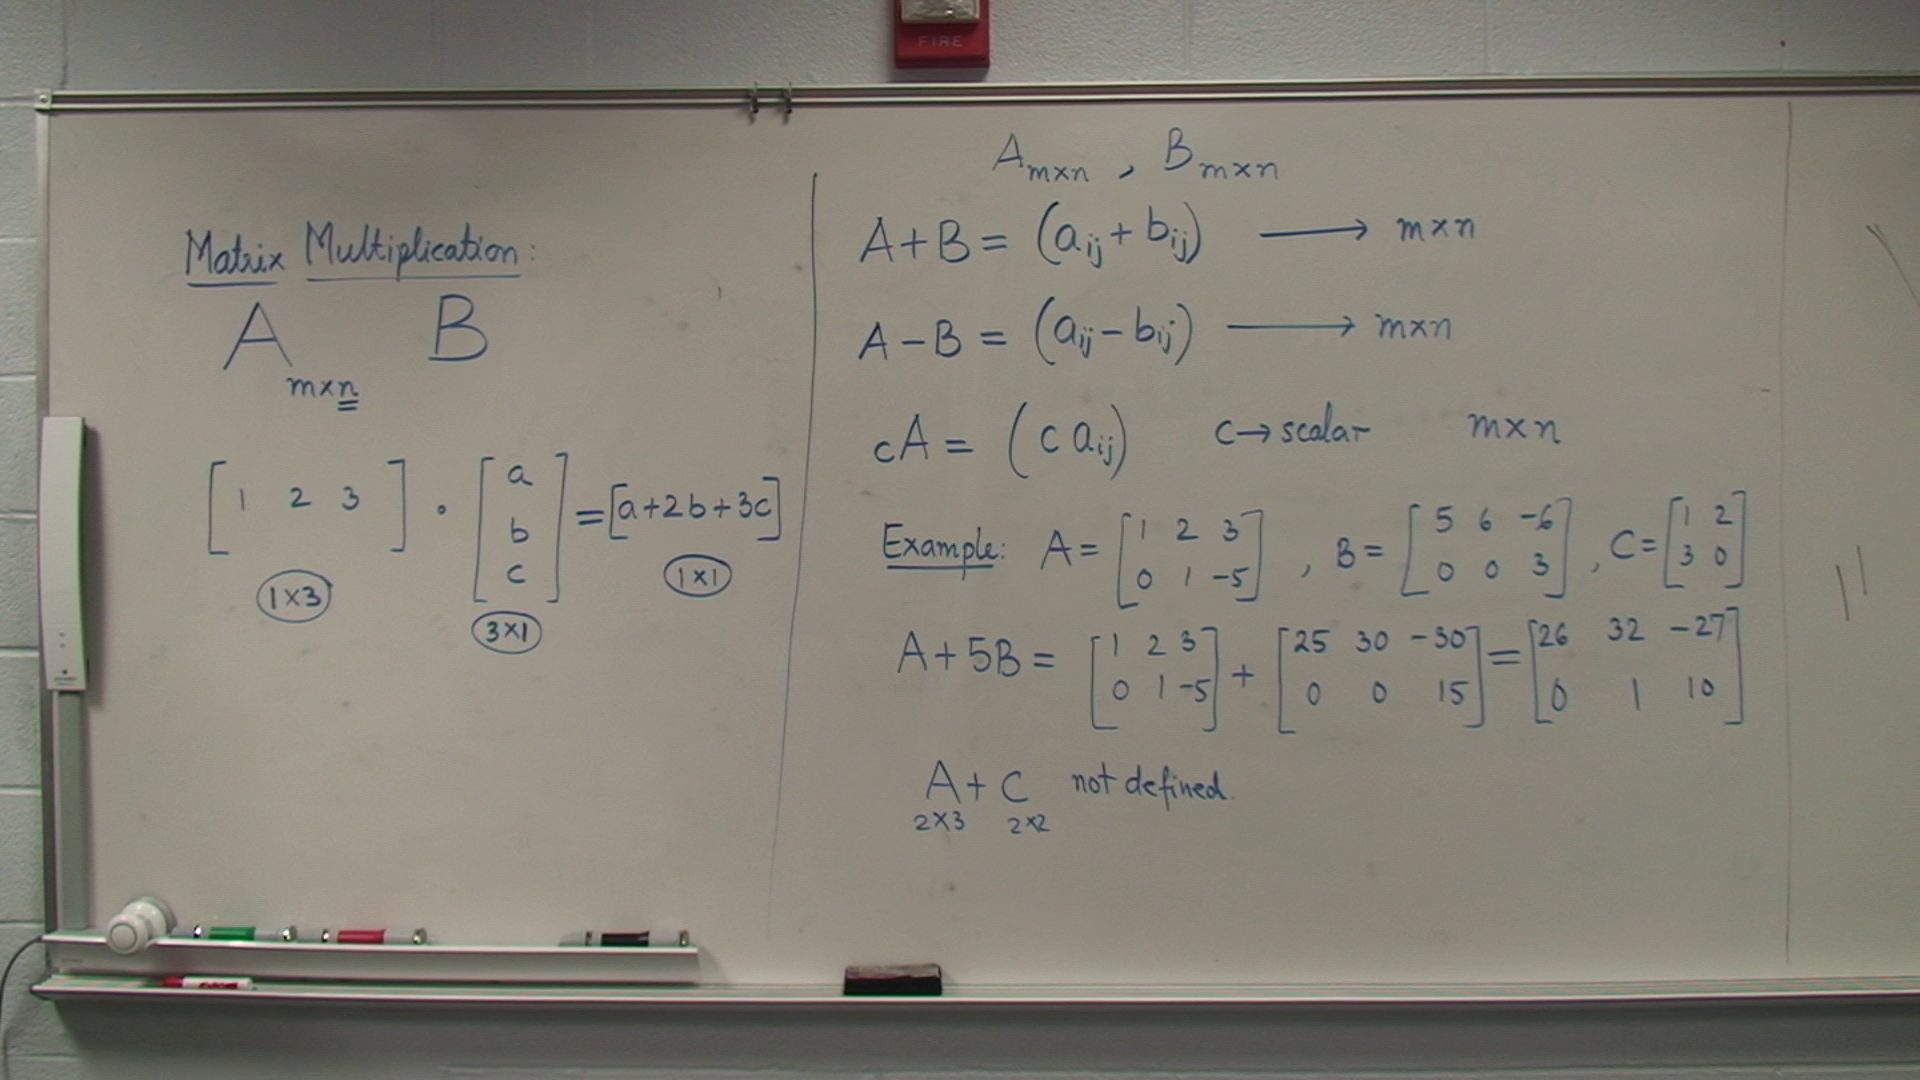 FIRE
Matrix Multiplication:
A m×n B
[1 2 3] · [a b c] = [a+2b+3c]
1×3 3×1 1×1
A m×n , B m×n
A+B = (aij + bij) ⟶ m×n
A−B = (aij − bij) ⟶ m×n
cA = (c aij) c→scalar m×n
Example: A = [1 2 3; 0 1 -5] , B = [5 6 -6; 0 0 3] , C = [1 2; 3 0]
A+5B = [1 2 3; 0 1 -5] + [25 30 -30; 0 0 15] = [26 32 -27; 0 1 10]
A + C not defined.
2×3 2×2